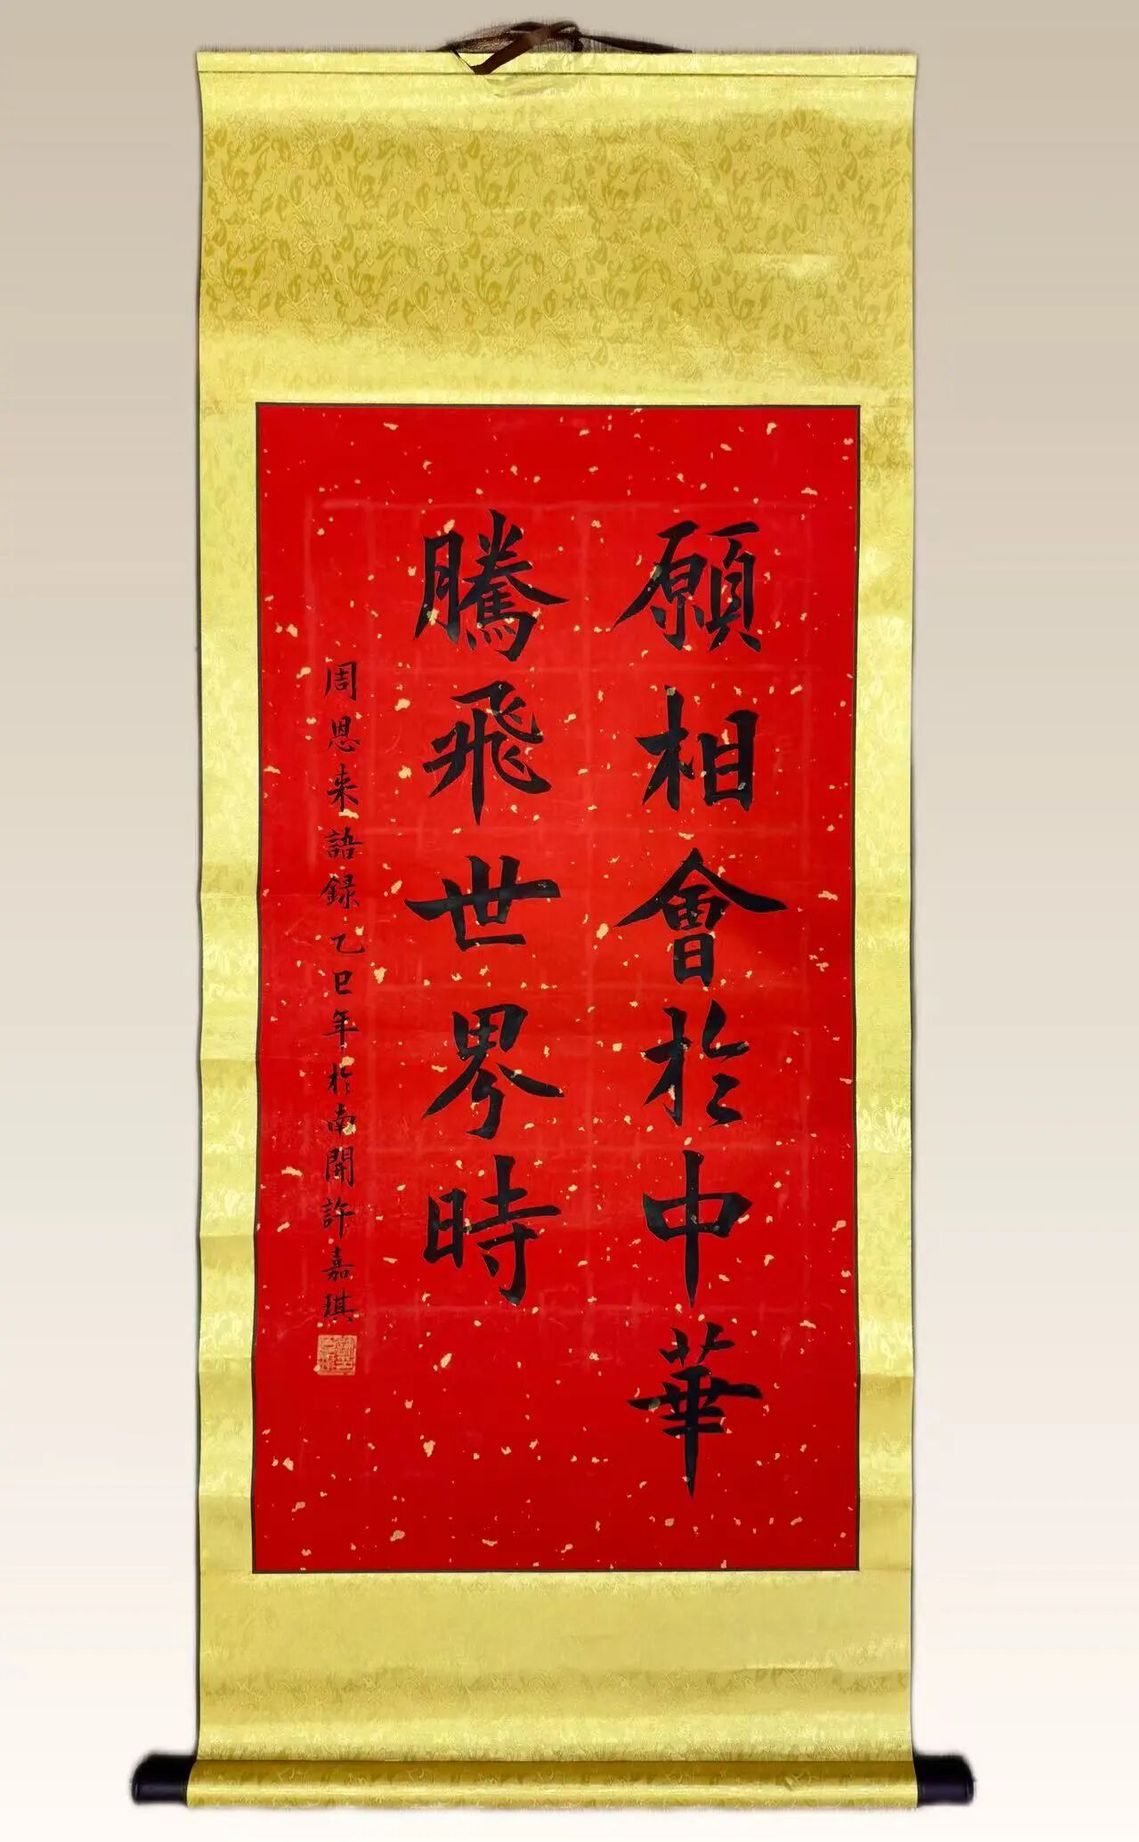 願相會於中華
騰飛世界時
周恩来語録乙巳年於南開許嘉琪